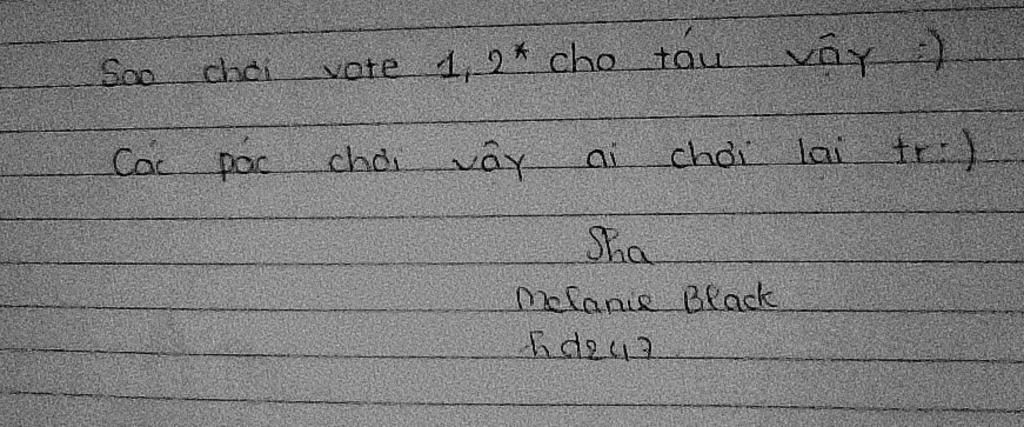 Sao chơi vote 1, 2* cho táu vậy :)
Các pác chơi vậy ai chơi lại tr:)
Sha
Melanie Black
hd247